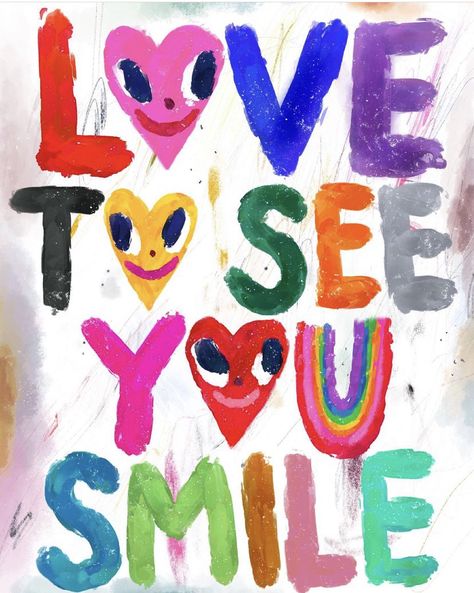 LOVE
TO SEE
YOU
SMILE